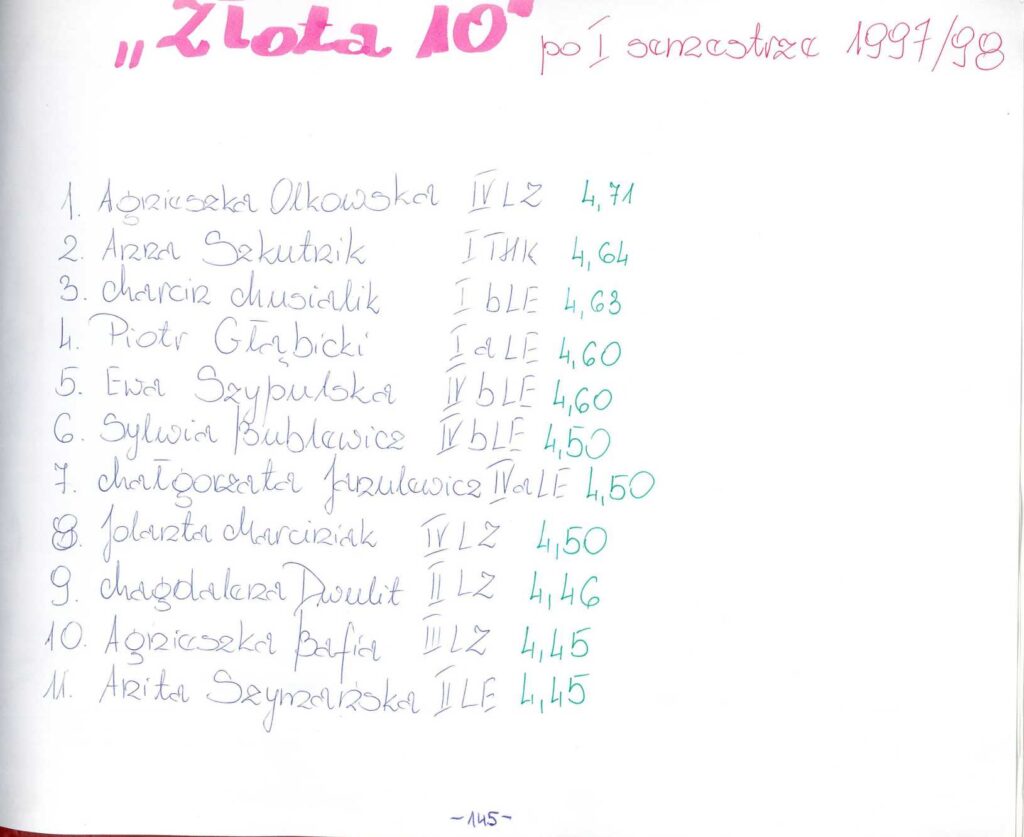 „Złota 10" po I semestrze 1997/98
1. Agnieszka Olkowska IV LZ 4,71
2. Anna Szkutnik I THK 4,64
3. Marcin Musialik I bLE 4,63
4. Piotr Głąbicki I aLE 4,60
5. Ewa Szypulska IV bLE 4,60
6. Sylwia Bublewicz IV bLE 4,50
7. Małgorzata Janulewicz IV aLE 4,50
8. Jolanta Marciniak IV LZ 4,50
9. Magdalena Dwulit II LZ 4,46
10. Agnieszka Bafia III LZ 4,45
11. Anita Szymańska II LE 4,45
-145-